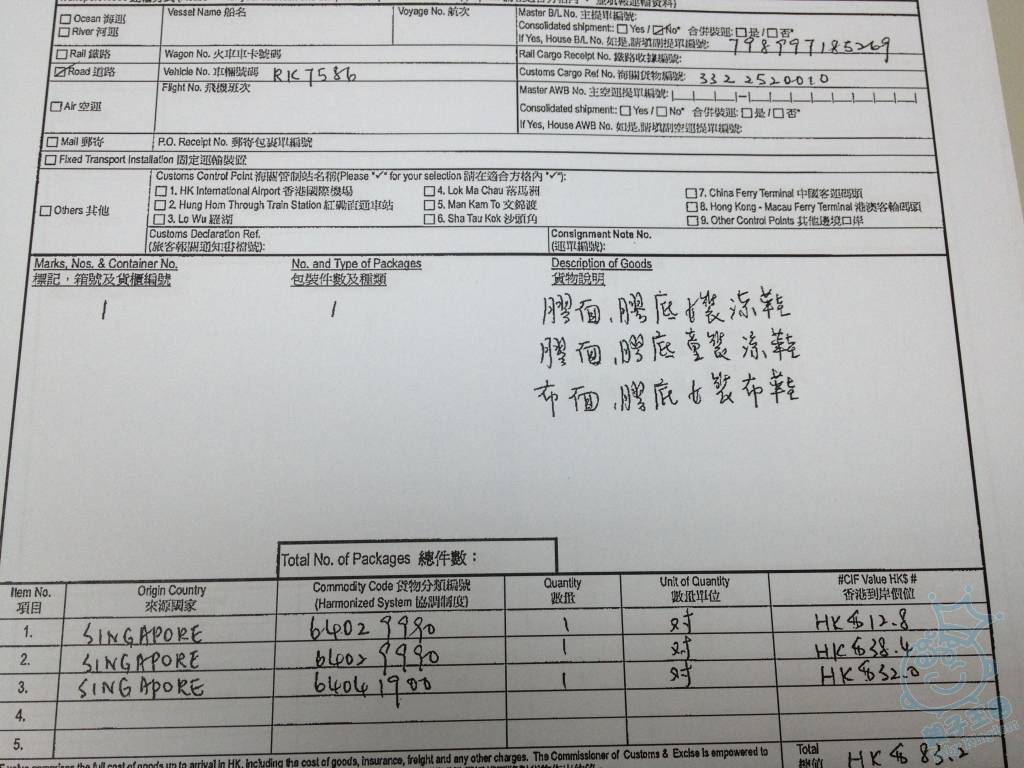 Ocean 海運
River 河運
Vessel Name 船名
Voyage No. 航次
Master B/L No. 主提單編號:
Consolidated shipment: Yes / No* 合併裝運: 是 / 否*
If Yes, House B/L No. 如是,請填副提單編號: 798997185269
Rail 鐵路
Wagon No. 火車車卡號碼
Rail Cargo Receipt No. 鐵路收據編號:
Road 道路
Vehicle No. 車輛號碼 RK7586
Customs Cargo Ref No. 海關貨物編號: 332 2520010
Air 空運
Flight No. 飛機班次
Master AWB No. 主空運提單編號:
Consolidated shipment: Yes / No* 合併裝運: 是 / 否*
If Yes, House AWB No. 如是,請填副空運提單編號:
Mail 郵寄
P.O. Receipt No. 郵寄包裹單編號
Fixed Transport Installation 固定運輸裝置
Others 其他
Customs Control Point 海關管制站名稱(Please "✓" for your selection 請在適合方格內 "✓"):
1. HK International Airport 香港國際機場
4. Lok Ma Chau 落馬洲
7. China Ferry Terminal 中國客運碼頭
2. Hung Hom Through Train Station 紅磡直通車站
5. Man Kam To 文錦渡
8. Hong Kong - Macau Ferry Terminal 港澳客輪碼頭
3. Lo Wu 羅湖
6. Sha Tau Kok 沙頭角
9. Other Control Points 其他邊境口岸
Customs Declaration Ref.
(旅客報關通知書檔號):
Consignment Note No.
(運單編號):
Marks, Nos. & Container No.
標記,箱號及貨櫃編號
No. and Type of Packages
包裝件數及種類
Description of Goods
貨物說明
1
1
膠面,膠底女裝涼鞋
膠面,膠底童裝涼鞋
布面,膠底女裝布鞋
Total No. of Packages 總件數:
Item No.
項目
Origin Country
來源國家
Commodity Code 貨物分類編號
(Harmonized System 協調制度)
Quantity
數量
Unit of Quantity
數量單位
#CIF Value HK$ #
香港到岸價值
1. SINGAPORE 64029990 1 对 HK$12.8
2. SINGAPORE 64029990 1 对 HK$38.4
3. SINGAPORE 64041900 1 对 HK$32.0
4.
5.
Total HK$83.2
the full cost of goods up to arrival in HK, including the cost of goods, insurance, freight and any other charges. The Commissioner of Customs & Excise is empowered to